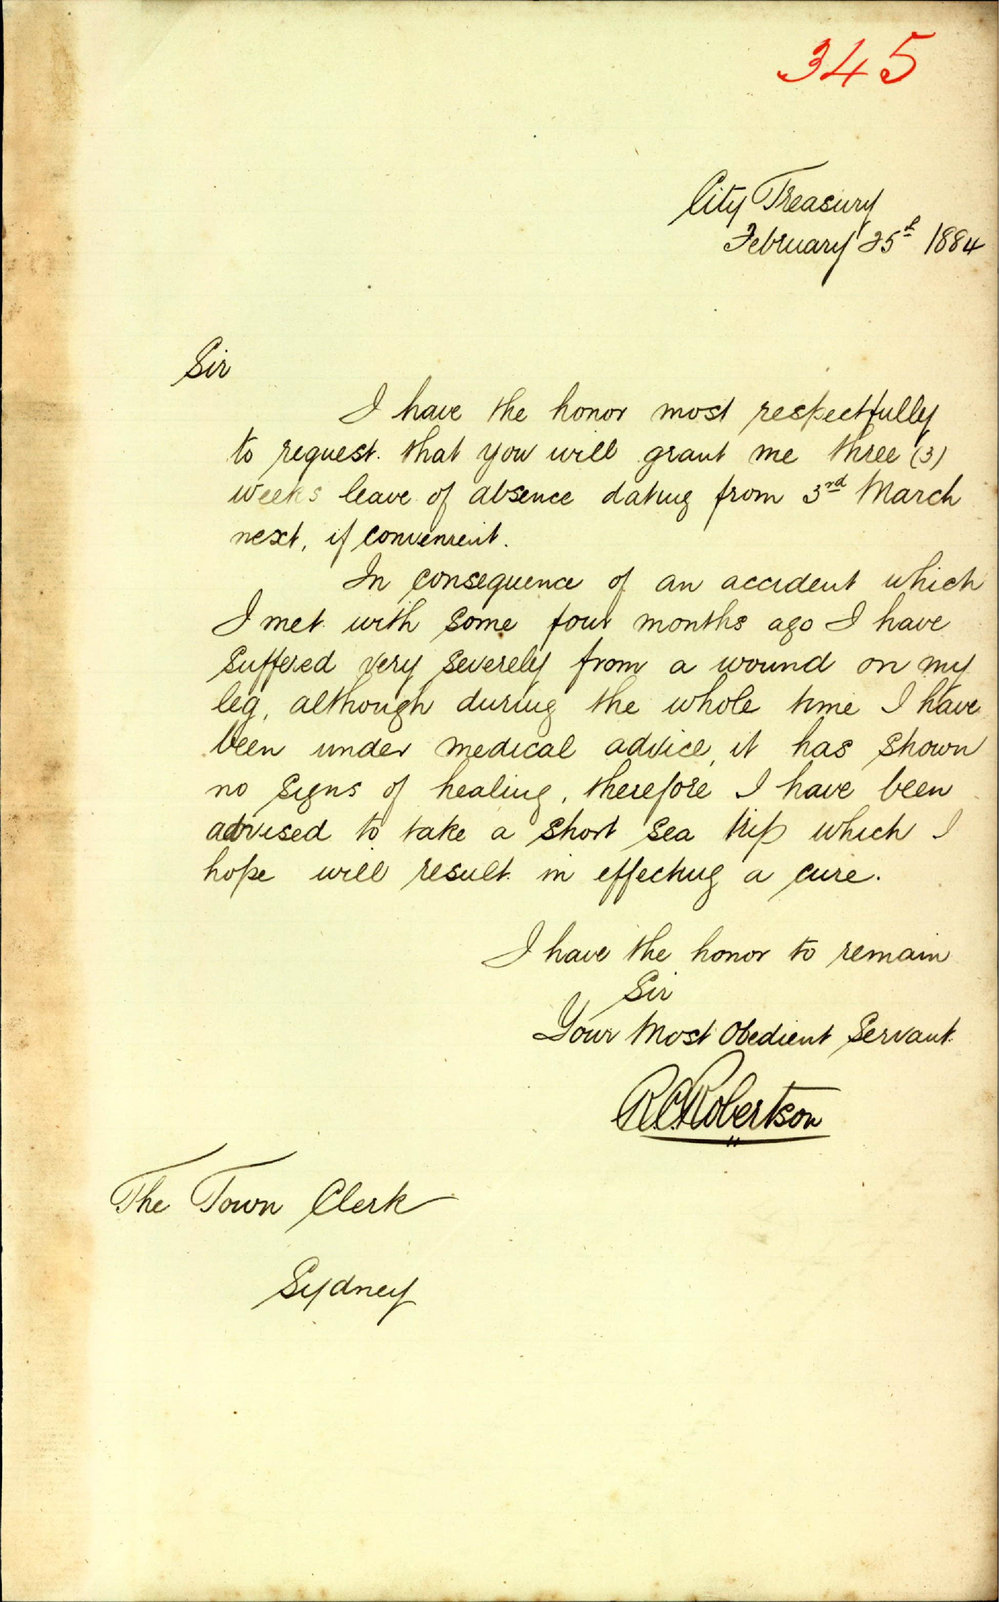 345
City Treasury
February 25th 1884
Sir
I have the honor most respectfully
to request that you will grant me three (3)
weeks leave of absence dating from 3rd March
next, if convenient.
In consequence of an accident which
I met with some four months ago I have
suffered very severely from a wound on my
leg, although during the whole time I have
been under medical advice, it has shown
no signs of healing, therefore I have been
advised to take a short sea trip which I
hope will result in effecting a cure.
I have the honor to remain
Sir
Your Most Obedient Servant
R.C. Robertson
The Town Clerk
Sydney